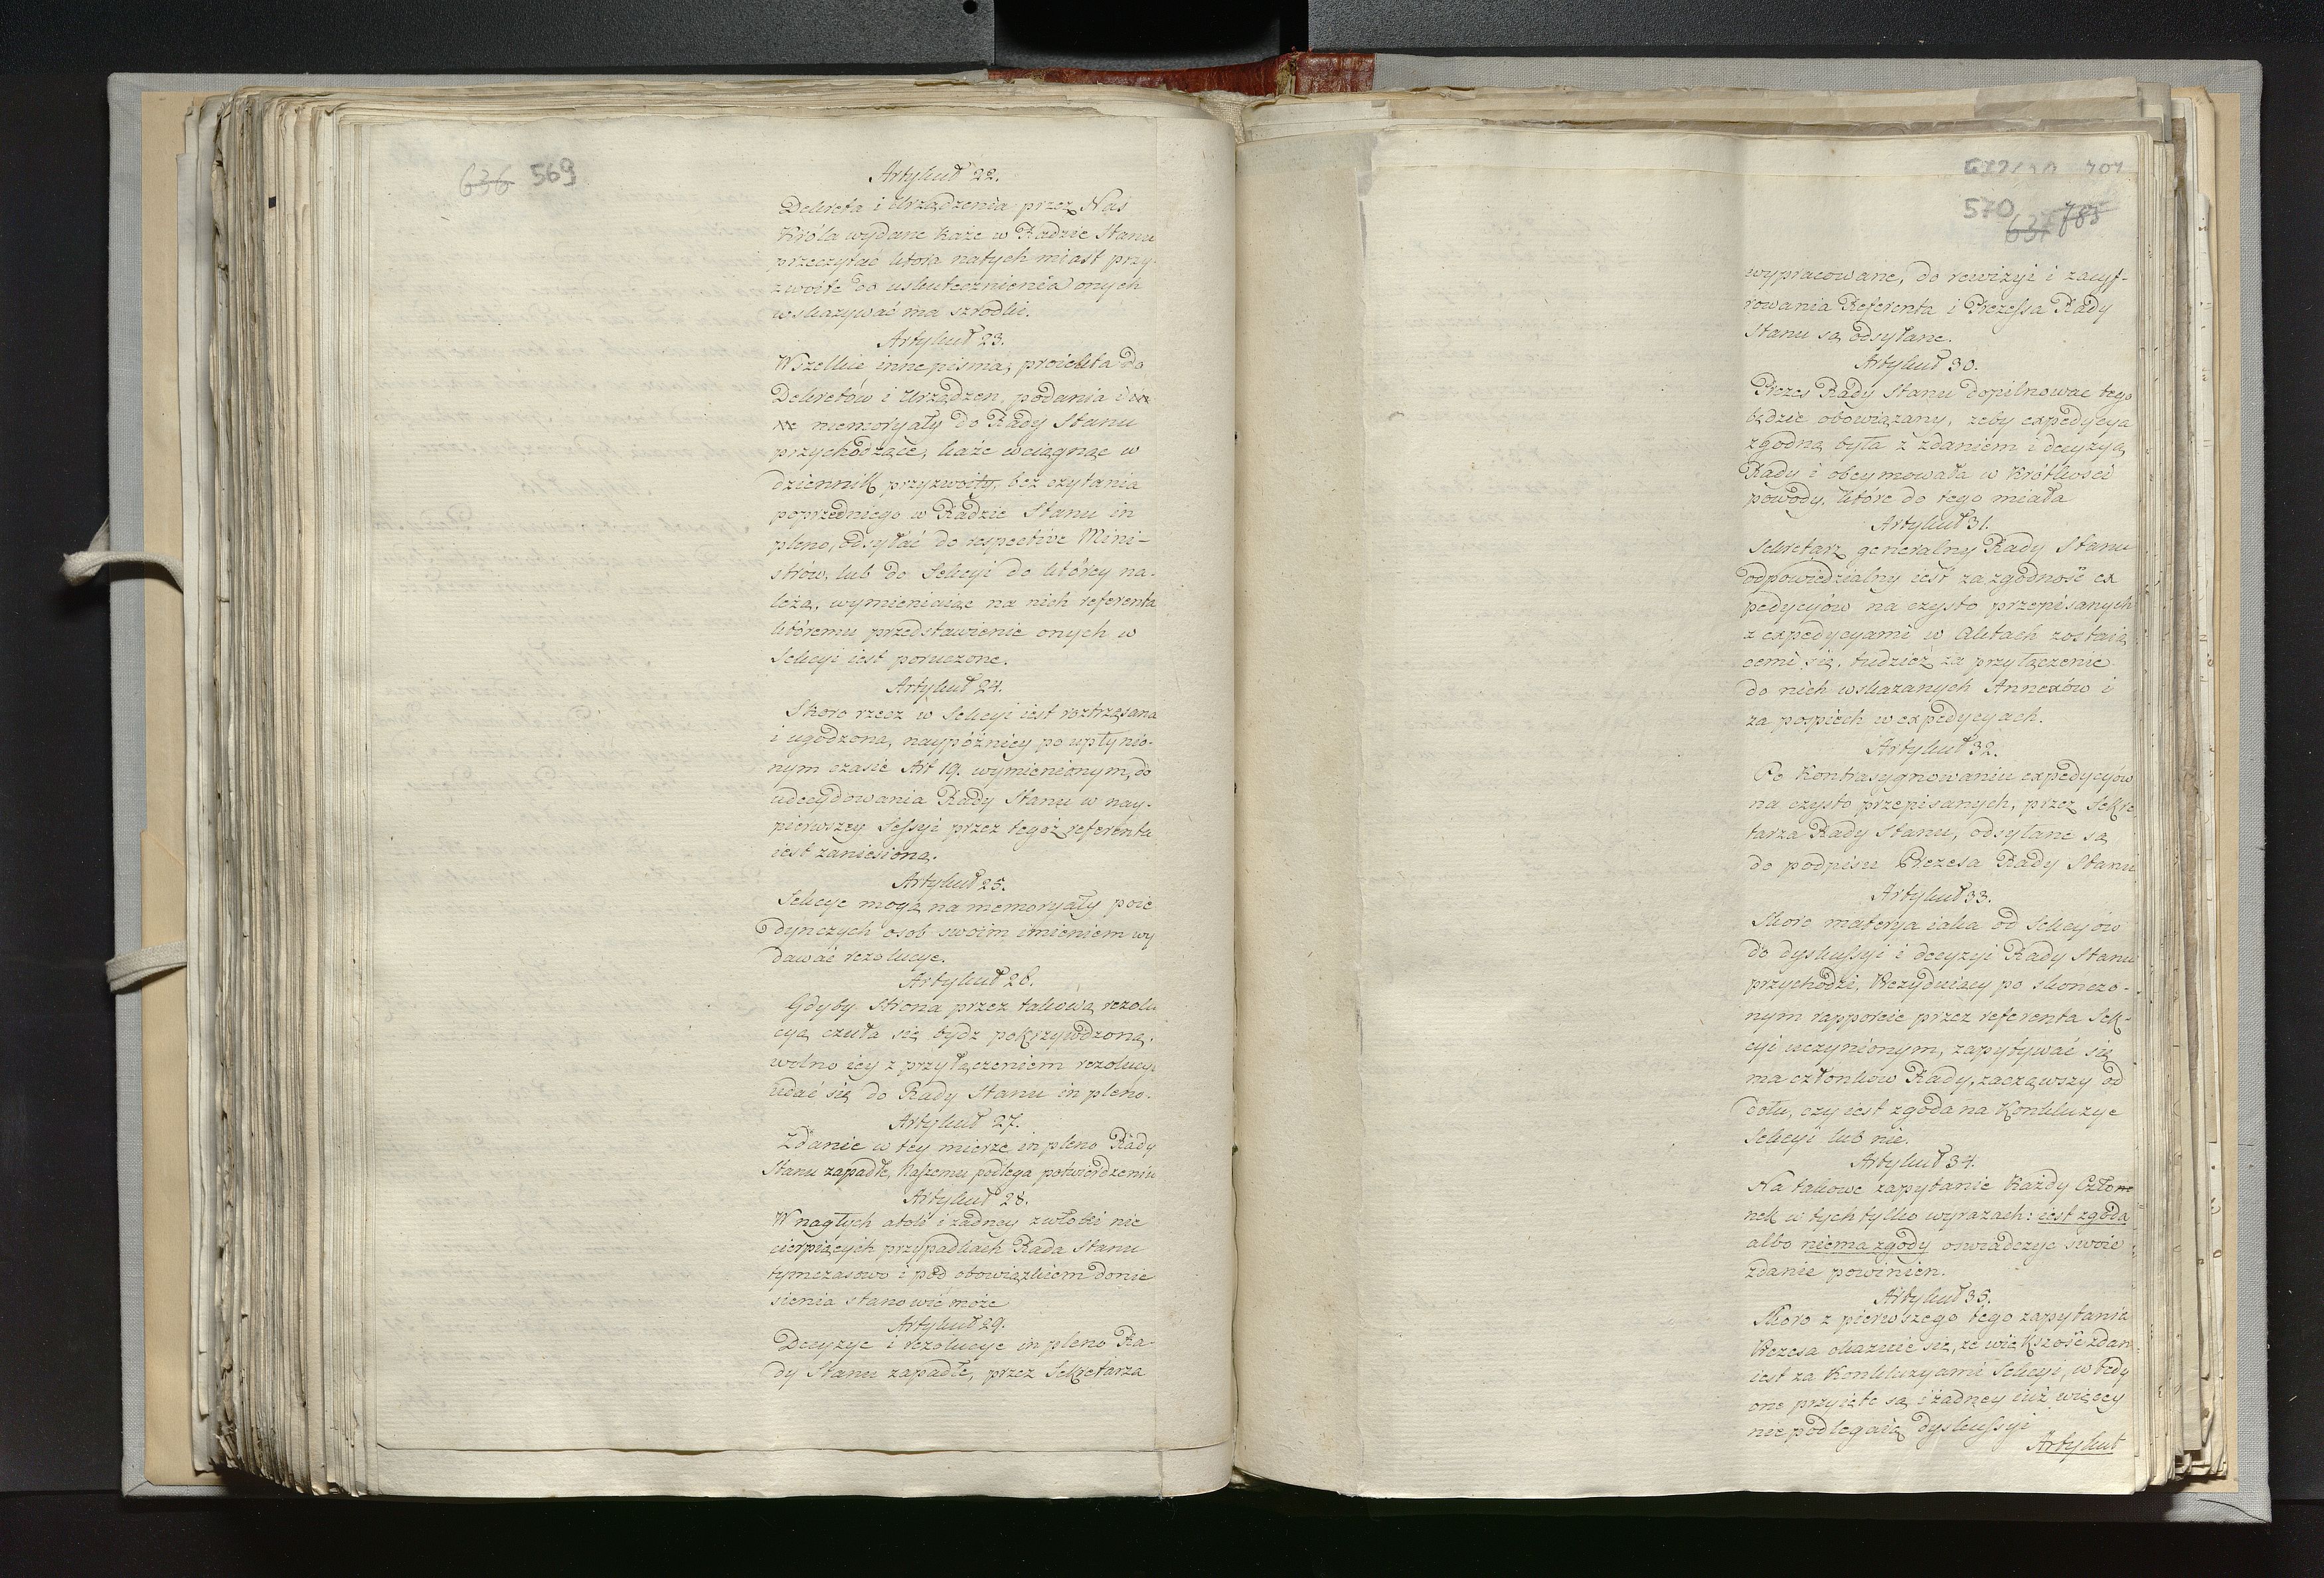 636 569
Artykuł 22.
Dekreta i Urządzenia przez Nas
Króla wydane każe w Radzie Stanu
przeczytać która natych miast przy-
zwoite do uskutecznienia onych
wskazywać ma szrodki.
Artykuł 23.
Wszelkie inne pisma, proiekta do
Dekretów i Urządzen, podania i in
ne memoryały do Rady Stanu
przychodzące, każe wciągnąc w
dziennik przyzwoity, bez czytania
poprzedniego w Radzie Stanu in
pleno, odsyłać do respective Mini-
strów, lub do Sekcyi do którey na-
leżą, wymieniaiąc na nich referenta
któremu przedstawienie onych w
Sekcyi iest poruczone.
Artykuł 24.
Skoro rzecz w Sekcyi iest roztrząsana
i ugodzona, naypóźniey po upłynio-
nym czasie Art 19. wymienionym, do
udecydowania Rady Stanu w nay-
pierwszey Sessyi przez tegoż referenta
iest zaniesiona.
Artykuł 25.
Sekcye mogą na memoryały poie
dynczych osob swoim imieniem wy
dawać rezolucye.
Artykuł 26.
Gdyby Strona przez takową rezolu
cyą czuła się bydz pokrzywdzoną,
wolno iey z przyłączeniem rezolucyi
udać się do Rady Stanu in pleno.
Artykuł 27.
Zdanie w tey mierze in pleno Rady
Stanu zapadłe, Naszemu podlega potwierdzeniu
Artykuł 28.
W nagłych atoli i żadney zwłoki nie
cierpiących przypadkach Rada Stanu
tymczasowo i pod obowiązkiem donie
sienia stanowić może
Artykuł 29.
Decyzye i rezolucye in pleno Ra-
dy Stanu zapadłe, przez Sekretarza
570 637 785
wypracowane, do rewizyi i zacyf-
rowania Referenta i Prezessa Rady
Stanu są odsyłane.
Artykuł 30.
Prezes Rady Stanu dopilnowac tego
będzie obowiązany, zeby expedycya
zgodną była z zdaniem i decyzyą
Rady i obeymowała w Krótkości
powody, które do tego miała
Artykuł 31.
Sekretarz generalny Rady Stanu
odpowiedzialny iest za zgodność ex
pedycyów na czysto przepisanych
z expedycyami w Aktach zostaią
cemi się, tudzież za przyłączenie
do nich wskazanych Annexów i
za pospiech w expedycyach.
Artykuł 32.
Po Kontrasygnowaniu expedycyów
na czysto przepisanych, przez Sekre
tarza Rady Stanu, odsyłane są
do podpisu Prezesa Rady Stanu
Artykuł 33.
Skoro materya iaka od Sekcyów
do dyskussyi i decyzyi Rady Stanu
przychodzi, Prezyduiący po skonczo-
nym rapporcie przez referenta Sek-
cyi uczynionym, zapytywać się
ma członków Rady, zacząwszy od
dołu, czy iest zgoda na Konkluzye
Sekcyi lub nie.
Artykuł 34.
Na takowe zapytanie Każdy Człon
nek w tych tylko wyrazach: iest zgoda
albo niema zgody oswiadczyc swoie
zdanie powinien.
Artykuł 35.
Skoro z pierwszego tego zapytania
Prezesa okazuie się, że większość zdan
iest za Konkluzyami Sekcyi, w tedy
one przyięte są i żadney iuż więcey
nie podlegaią dyskussyi
Artykuł